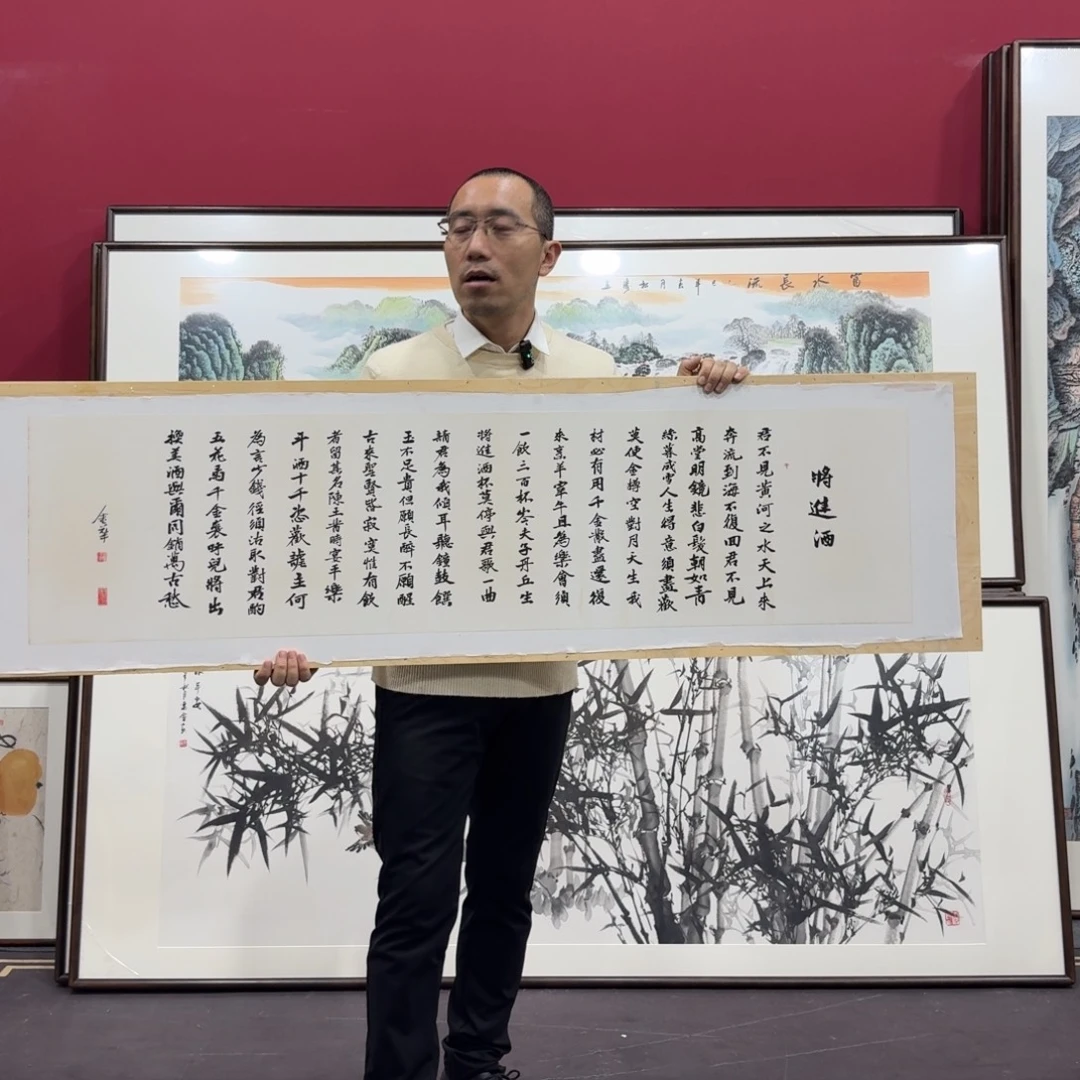 富水長流
將進酒
君不見黃河之水天上來
奔流到海不復回君不見
高堂明鏡悲白髮朝如青
絲暮成雪人生得意須盡歡
莫使金罇空對月天生我
材必有用千金散盡還復
來烹羊宰牛且為樂會須
一飲三百杯岑夫子丹丘生
將進酒杯莫停與君歌一曲
請君為我傾耳聽鐘鼓饌
玉不足貴但願長醉不願醒
古來聖賢皆寂寞惟有飲
者留其名陳王昔時宴平樂
斗酒十千恣歡謔主何
為言少錢徑須沽取對君酌
五花馬千金裘呼兒將出
換美酒與爾同銷萬古愁